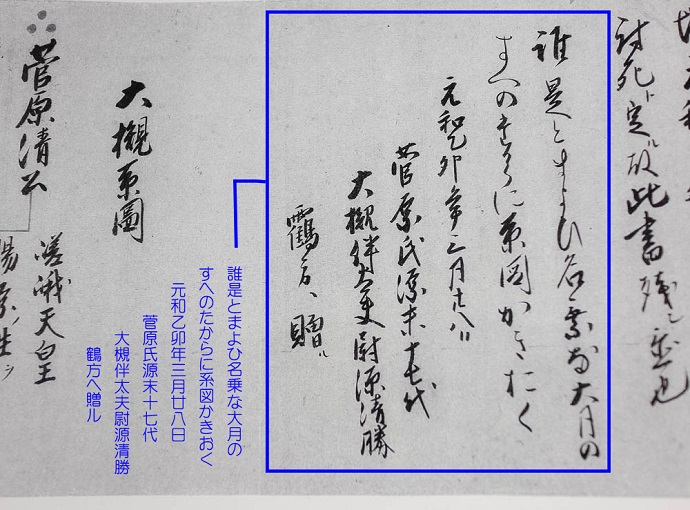 討死ト定ル故此書残シ置也
誰是とまよひ名乗な大月の
すへのたからに系図かきおく
元和乙卯年三月廿八日
菅原氏源末十七代
大槻伴太夫尉源清勝
鶴方へ贈ル
誰是とまよひ名乗な大月の
すへのたからに系図かきおく
元和乙卯年三月廿八日
菅原氏源末十七代
大槻伴太夫尉源清勝
鶴方へ贈ル
大槻系圖
菅原清公
嵯峨天皇